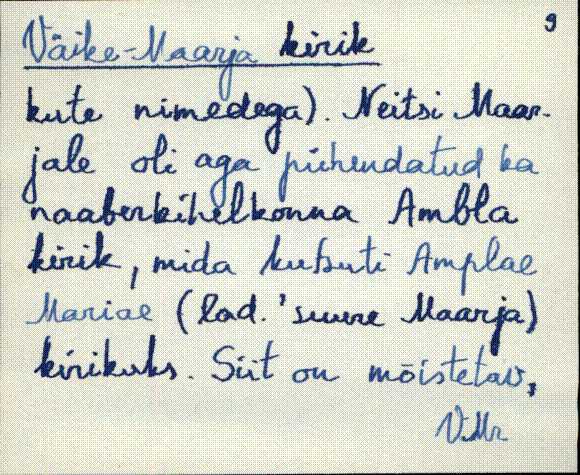 9
Väike-Maarja kirik
kute nimedega). Neitsi Maar-
jale oli aga pühendatud ka
naaberkihelkonna Ambla
kirik, mida kutsuti Amplae
Mariae (lad. 'suure Maarja)
kirikuks. Siit on mõistetav,
V.Mr